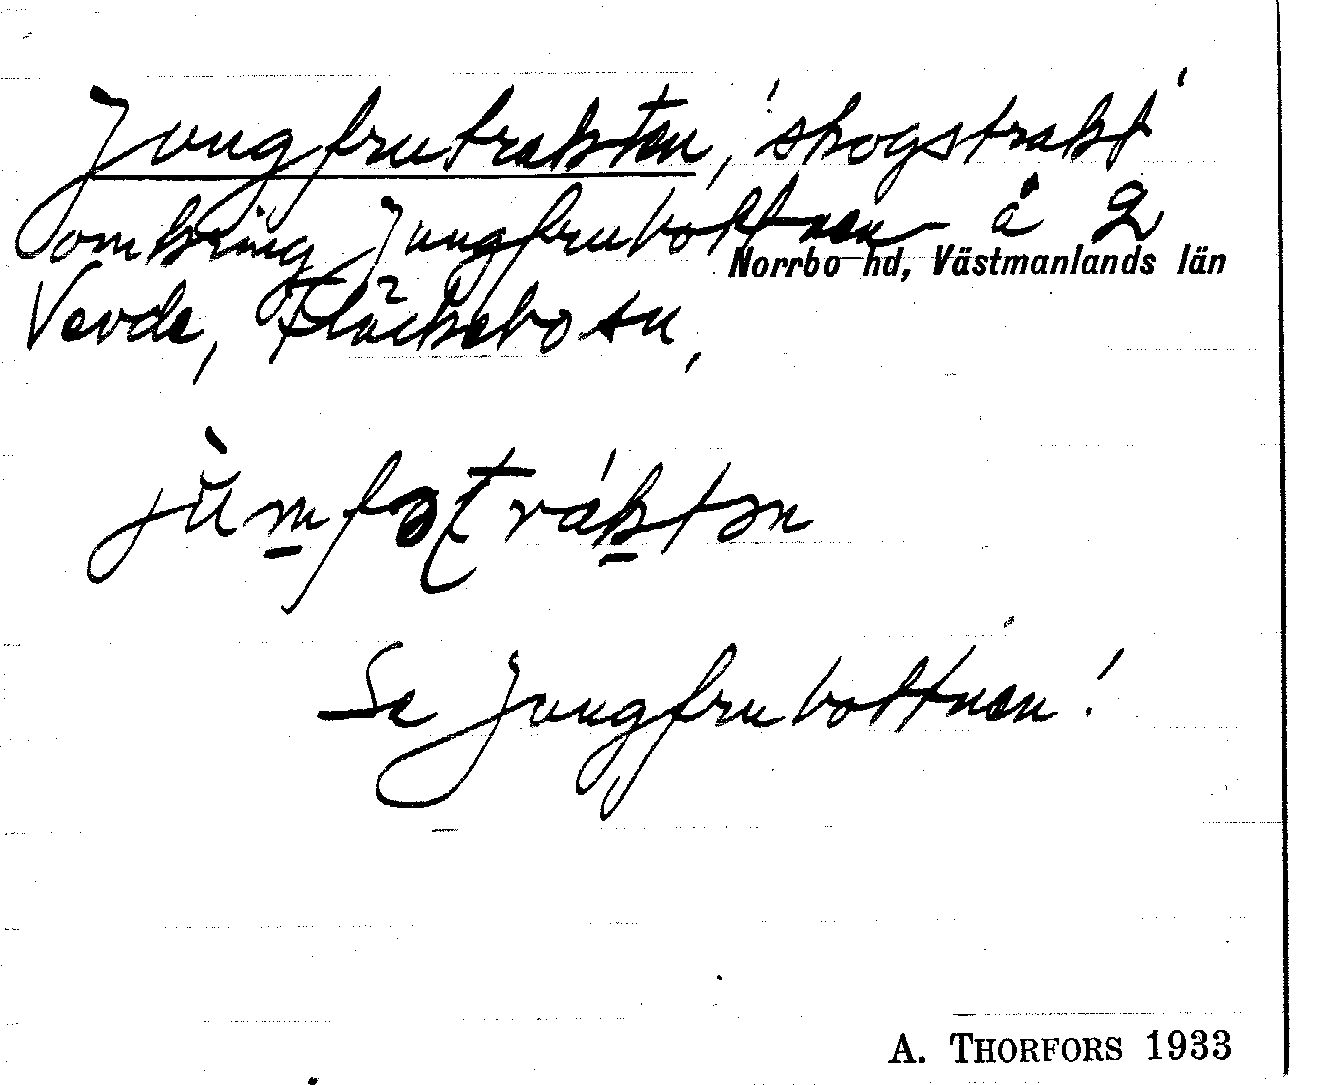 Jungfrutrakten, 'skogstrakt'
omkring Jungfrubottnen å 2
Norrbo hd, Västmanlands län
Vevde, Fläckebo sn,
jùmfətráktən
Se Jungfrubottnen!
A. THORFORS 1933